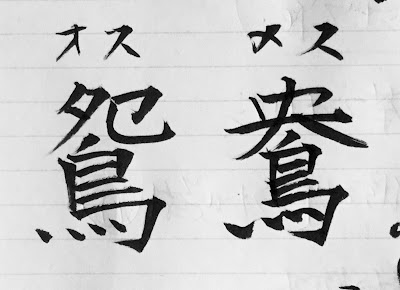 オス メス
鴛 鴦